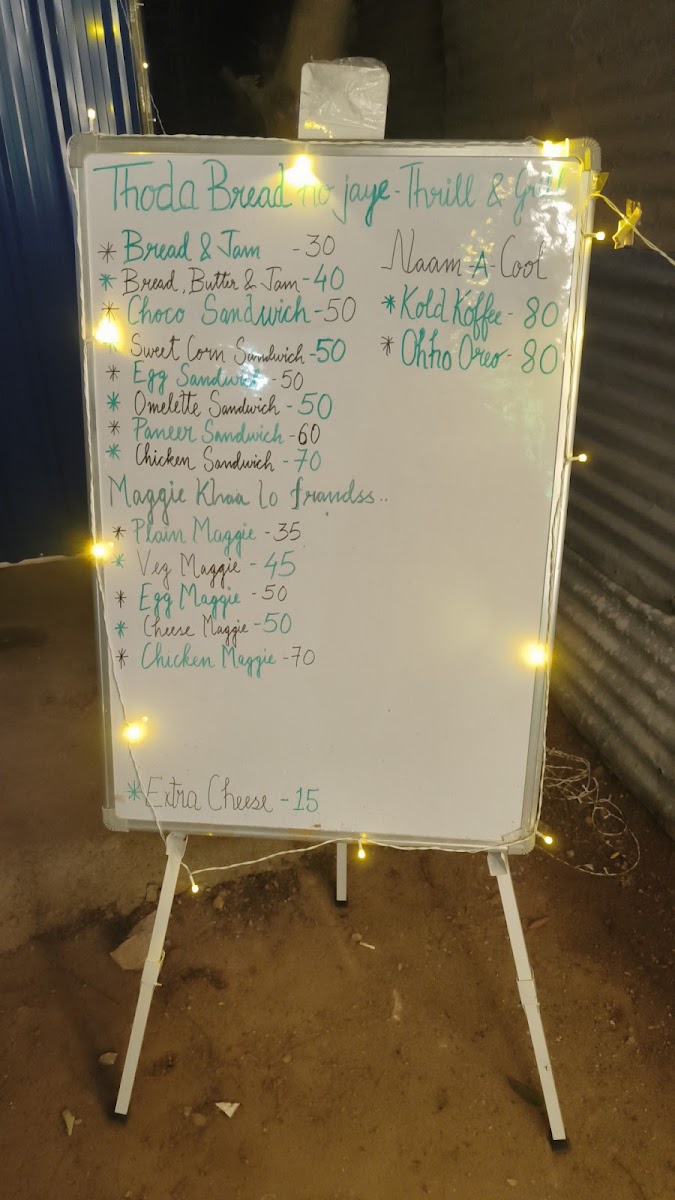 Thoda Bread Ho jaye - Thrill & Grill
* Bread & Jam - 30
* Bread, Butter & Jam - 40
* Choco Sandwich - 50
* Sweet Corn Sandwich - 50
* Egg Sandwich - 50
* Omelette Sandwich - 50
* Paneer Sandwich - 60
* Chicken Sandwich - 70
Maggie Khaa lo frandss..
* Plain Maggie - 35
* Veg Maggie - 45
* Egg Maggie - 50
* Cheese Maggie - 50
* Chicken Maggie - 70
* Extra Cheese - 15
Naam-A-Cool
* Kold Koffee - 80
* Ohho Oreo - 80